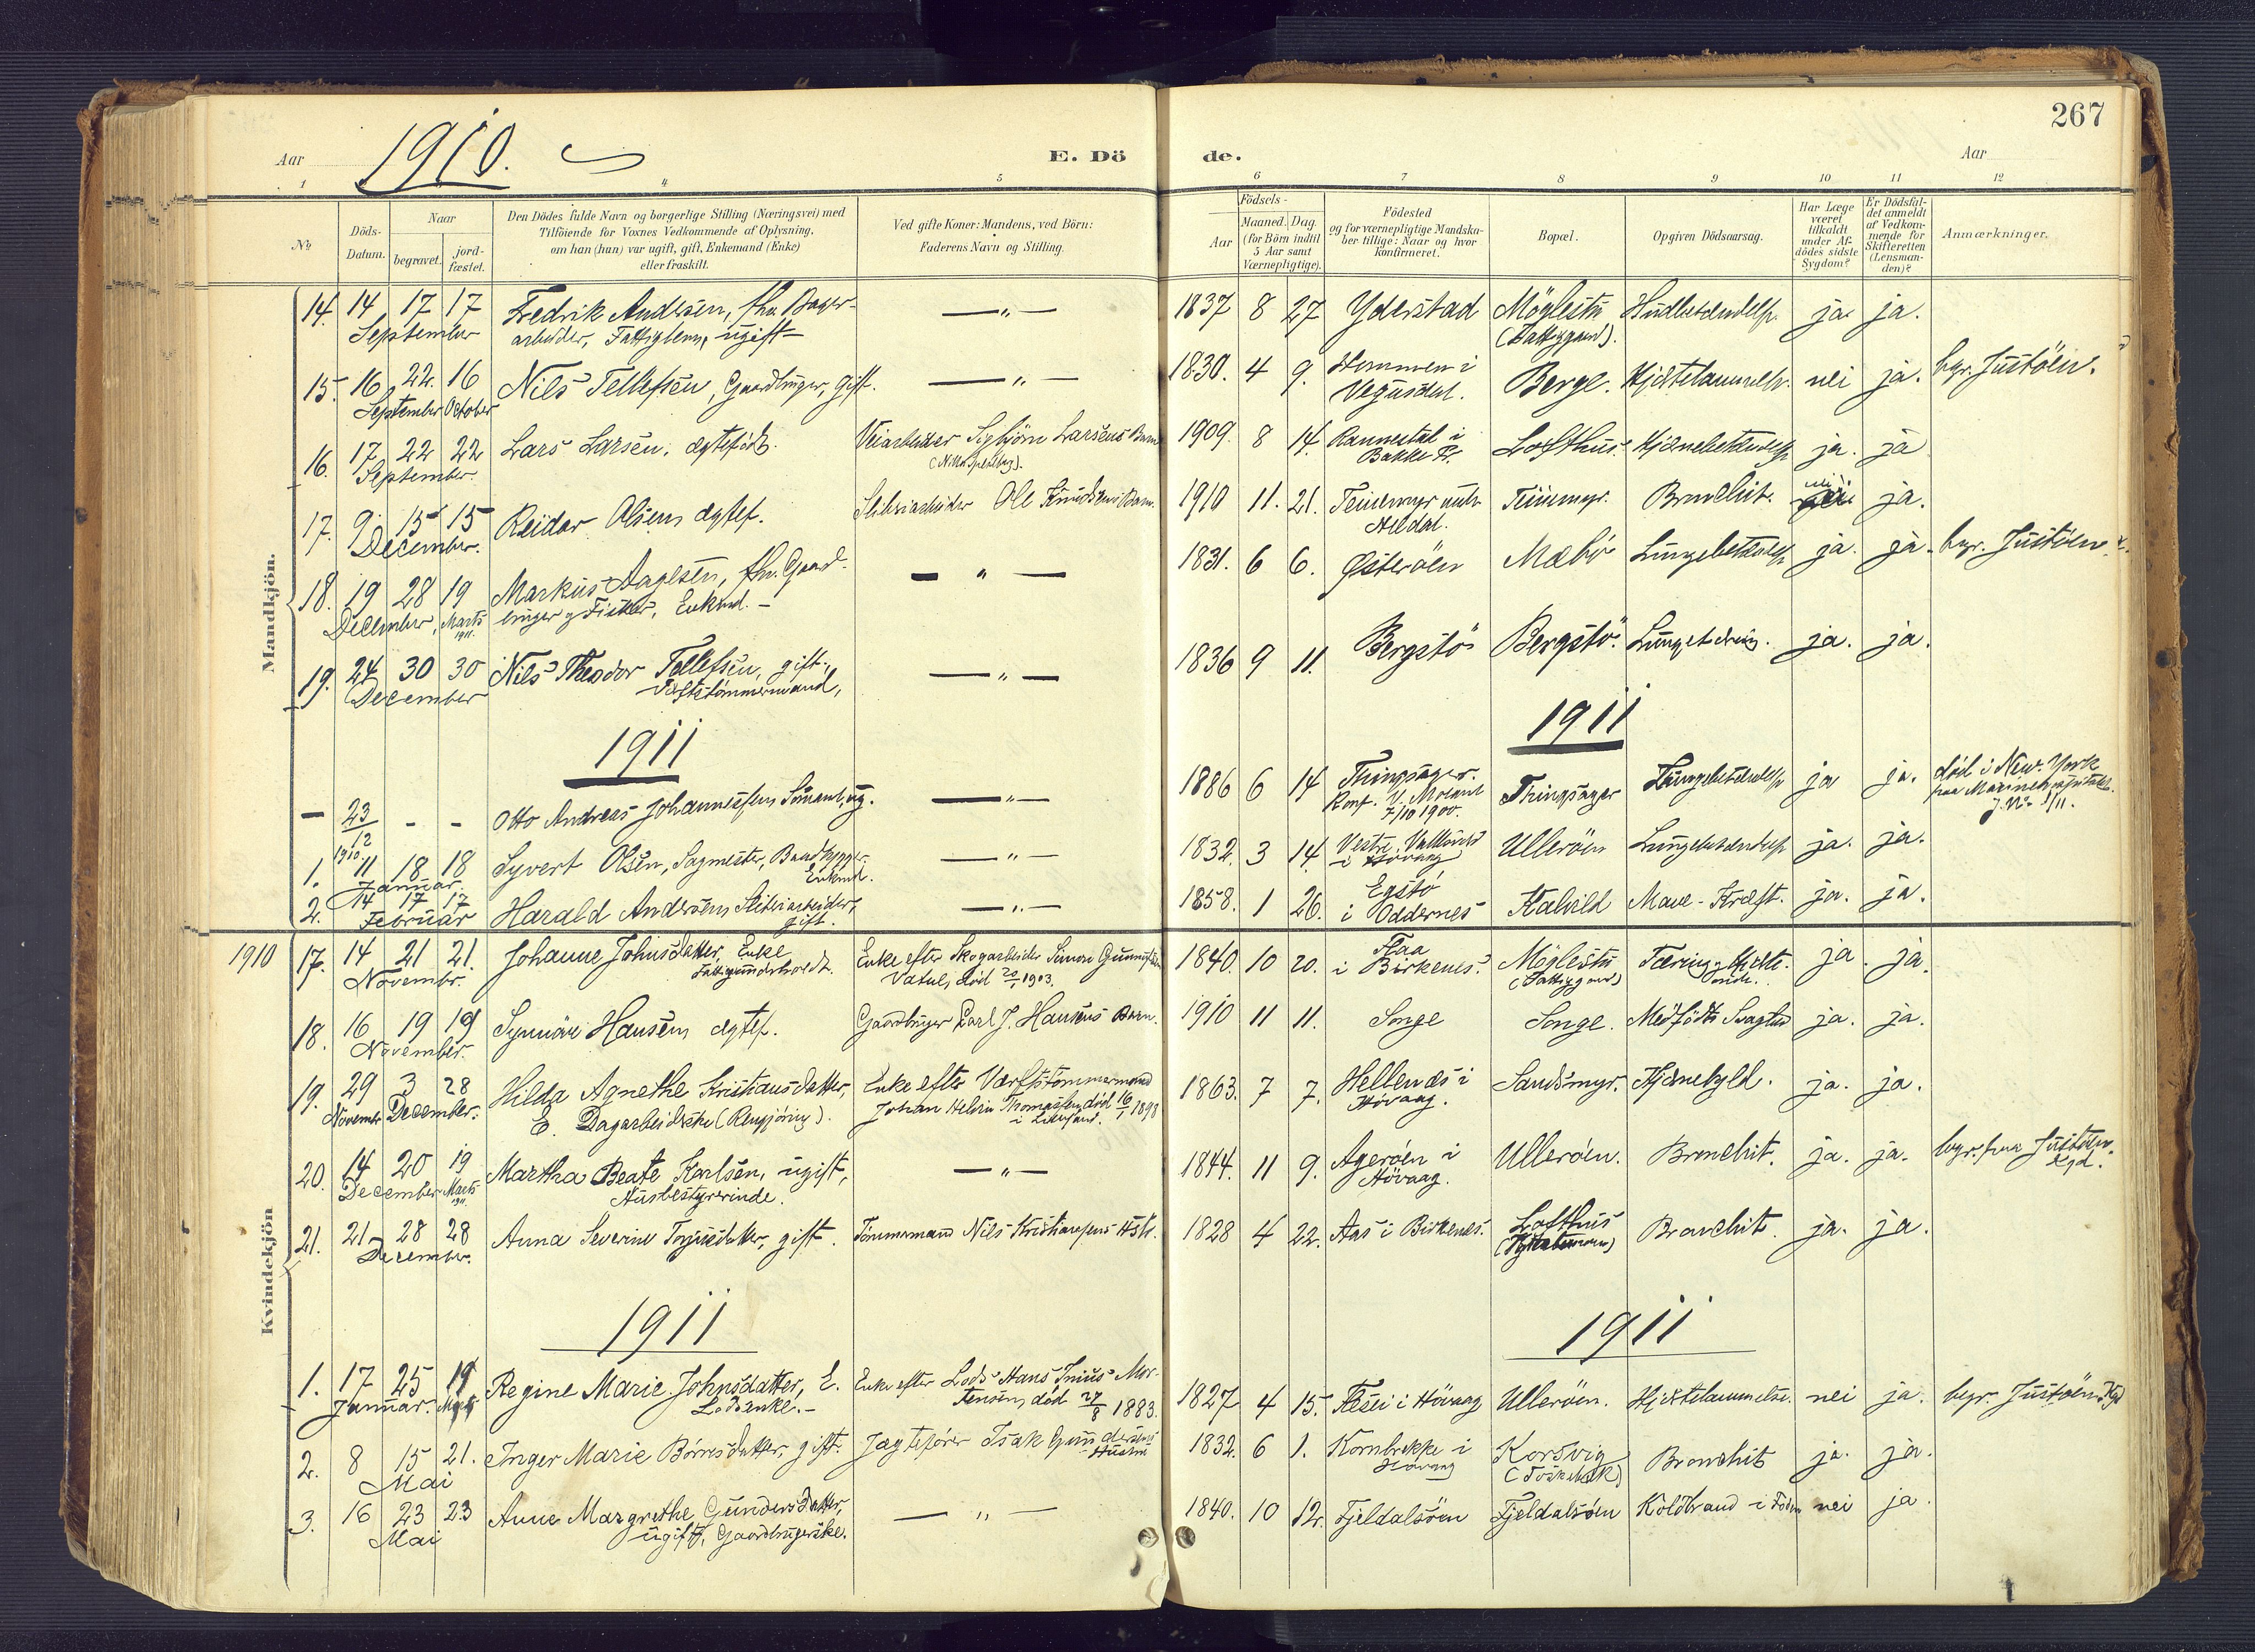 267
Aar 1910.
E. Dö de.
Aar
1 4 5 6 7 8 9 10 11 12
№
Döds-Datum.
Naar
begravet.
jord-fæstet.
Den Dödes fulde Navn og borgerlige Stilling (Næringsvei) med
Tilföiende for Voxnes Vedkommende af Oplysning,
om han (hun) var ugift, gift, Enkemand (Enke)
eller fraskilt.
Ved gifte Koner: Mandens, ved Börn:
Faderens Navn og Stilling.
Födsels-
Aar
Maaned. Dag
(for Börn indtil
5 Aar samt
Værnepligtige).
Födested
og for værnepligtige Mandska-
ber tillige: Naar og hvor
konfirmeret.
Bopæl.
Opgiven Dödsaarsag.
Har Læge
været
tilkaldt
under Af-
dödes sidste
Sygdom?
Er Dödsfal-
det anmeldt
af Vedkom-
mende for
Skifteretten
(Lensman-
den)?
Anmærkninger.
Mandkjön.
14. 14 17 17 Fredrik Andersen, fhv. —"— 1837 8 27 Yderstad Möglestu ja ja.
September arbeider, Fattiglem, ugift (Fattiggaard).
15. 16 22. 16 Nils Tellefsen, Gaardbruger, gift. —"— 1830. 4 9. Hommen i Berge. Hjertelammelse. nei ja. begr. Justöen.
September October Vegusdal.
16. 17 22 22 Lars Larsen, ægtefödt. Veiarbeider Sigbjörn Larsens Barn 1909. 8 14. Rannestal i Lofthus. Hjernebetændelse ja. ja
September. Bakke
17. 9 15 15 Reidar Olsen, ægtef. Sliberiarbeider Ole Knudsens Barn. 1910 11. 21. Teinemyr Teinemyr. Bronchit. nei ja.
December.
18. 19 28 19 Markus Aagesen, fhv. Gaard- —"— 1831. 6 6. Østeröen Mæbö Lungebetændelse ja. ja. begr. Justöen
December, Marts 1911. bruger og Fisker, Enkmd.
19. 24 30 30 Nils Theodor Tellefsen, gift, —"— 1836 9 11. Bergstö Bergstö. ja. ja.
December Værftstömmermand,
1911
1911
— 23/12 1910 - - Otto Andreas Johannessen, Sömand, ug. —"— 1886 6 14 Thingsager. Thingsager Lungebetændelse ja ja. död i New-York
Konf. V. Moland 7/10 1900. paa Marinehospitalet. J. No 1/11.
1. 11 18 18 Syvert Olsen, Sagmester, Baadbygger. —"— 1832. 3 14. Vestre Vallesverd Ulleröen Lungebetændelse ja. ja.
Januar. Enkmd. i Hövaag
2. 14 17 17 Harald Andersen, Sliberiarbeider, —"— 1858. 1 26. Egstö Kalvild Mave-Kræft. ja. ja.
Februar gift. i Oddernes
Kvindekjön
1910 17. 14 21 21. Johanne Johnsdatter, Enke Enke efter Skogarbeider Simon Gunnufsen 1840. 10 20. Flaa Möglestu ja. ja.
Novembr. Fattigunderholdt. Vatul, död 20/1 1903. i Birkenes. (Fattiggaard)
18. 16 19 19 Synnöve Hansen, ægtef. Gaardbruger Carl J. Hansens Barn. 1910 11 11. Songe Songe. Medfödt Svaghed ja. ja.
November.
19. 29 3 28 Hilda Agnethe Kristiansdatter, Enke efter Værftstömmermand 1863. 7 7. Hellenæs i Sandsmyr. ja. ja.
November December. E. Dagarbeiderske (Rengjöring). Johan Thomassen, död 16/1 1898 Hövaag.
20. 14 20 19 Martha Beate Karlsen, ugift, —"— 1844. 11 9. Ageröen i Ulleröen. Bronchit. ja. ja. begr. paa Justöen
December Marts 1911. Husbestyrerinde. Hövaag. Kgd.
21. 21 28 28 Anna Severine Terjusdatter, gift. Tömmermand Nils Kristiansens Hstr. 1828 4 22. Aas i Birkenes. Lofthus Bronchit. ja. ja.
December.
1911
1911
1. 17 25 19 Regine Marie Johnsdatter, E. Enke efter Lods Hans Mor- 1827 4 15. i Hövaag Ulleröen. Hjertelammelse. nei ja. begr. Justöens Kgd
Januar. Marts Lodsenke. tensen, död 27/8 1883.
2. 8 15 21. Inger Marie Börresdatter, gift. Jagtefører Isak Gundersens 1832. 6 1. Kornbrekke i Korsvig Bronchit ja. ja.
Mai Hustru Hövaag
3. 16 23 23 Anne Margrethe Gundersdatter, —"— 1840. 10 12. Fjeldalsöen Fjeldalsöen Koldbrand i Foden nei ja
Mai ugift, Gaardbrugerske.